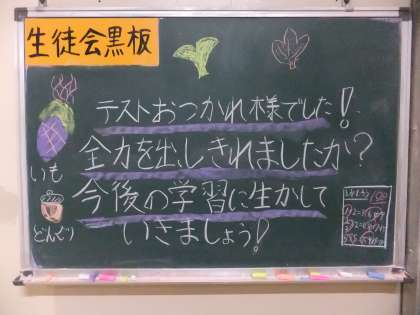 生徒会黒板
テストおつかれ様でした!
全力を出しきれましたか?
今後の学習に生かして
いきましょう!
いも
どんぐり